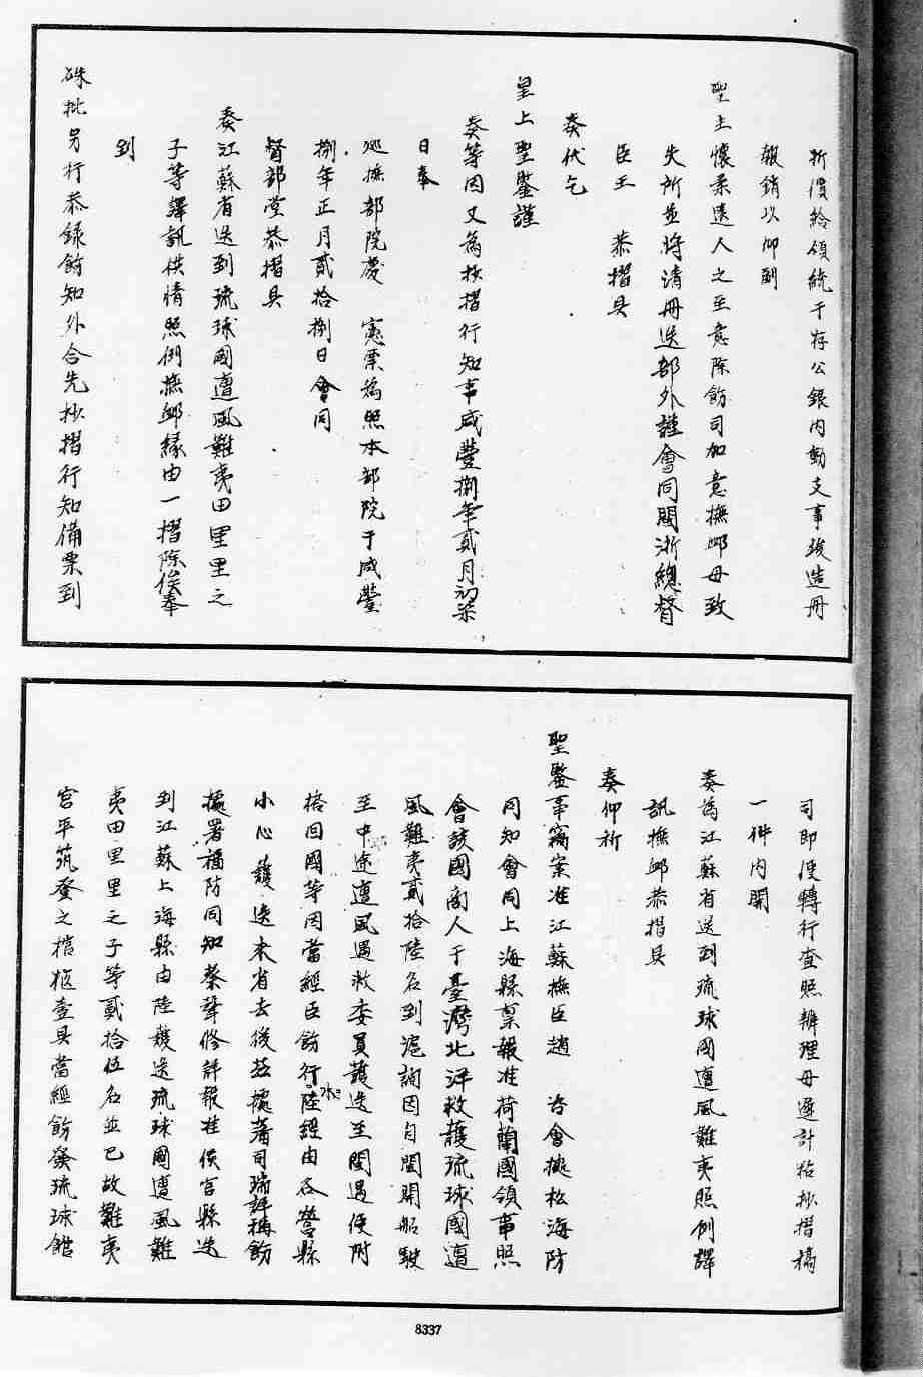 折價給領統于存公銀內動支事竣造冊
報銷以仰副
聖主懷柔遠人之至意除飭司加意撫卹毋致
失所並將清冊送部外謹會同閩浙總督
臣王　恭摺具
奏伏乞
皇上聖鑒謹
奏等因又為抄摺行知事咸豐捌年貳月初柒
日奉
巡撫部院慶　憲票為照本部院于咸豐
捌年正月貳拾捌日會同
督部堂恭摺具
奏江蘇省送到琉球國遭風難夷田里里之
子等譯訊供情照例撫卹緣由一摺除俟奉
到
硃批另行恭錄飭知外合先抄摺行知備票到
司即便轉行查照辦理毋遲計粘抄摺稿
一件內開
奏為江蘇省送到琉球國遭風難夷照例譯
訊撫卹恭摺具
奏仰祈
聖鑒事竊案准江蘇撫臣趙　咨會據松海防
同知會同上海縣稟報准荷蘭國領事照
會該國商人于臺灣北洋救護琉球國遭
風難夷貳拾陸名到滬詢因自閩開船駛
至中途遭風遇救委員護送至閩遇便附
搭回國等因當經臣飭行水陸經由各營縣
小心護送來省去後茲據藩司瑞詳稱飭
據署福防同知蔡聲修詳報准侯官縣送
到江蘇上海縣由陸護送琉球國遭風難
夷田里里之子等貳拾伍名並已故難夷
宮平筑登之棺柩壹具當經飭發琉球館
8337